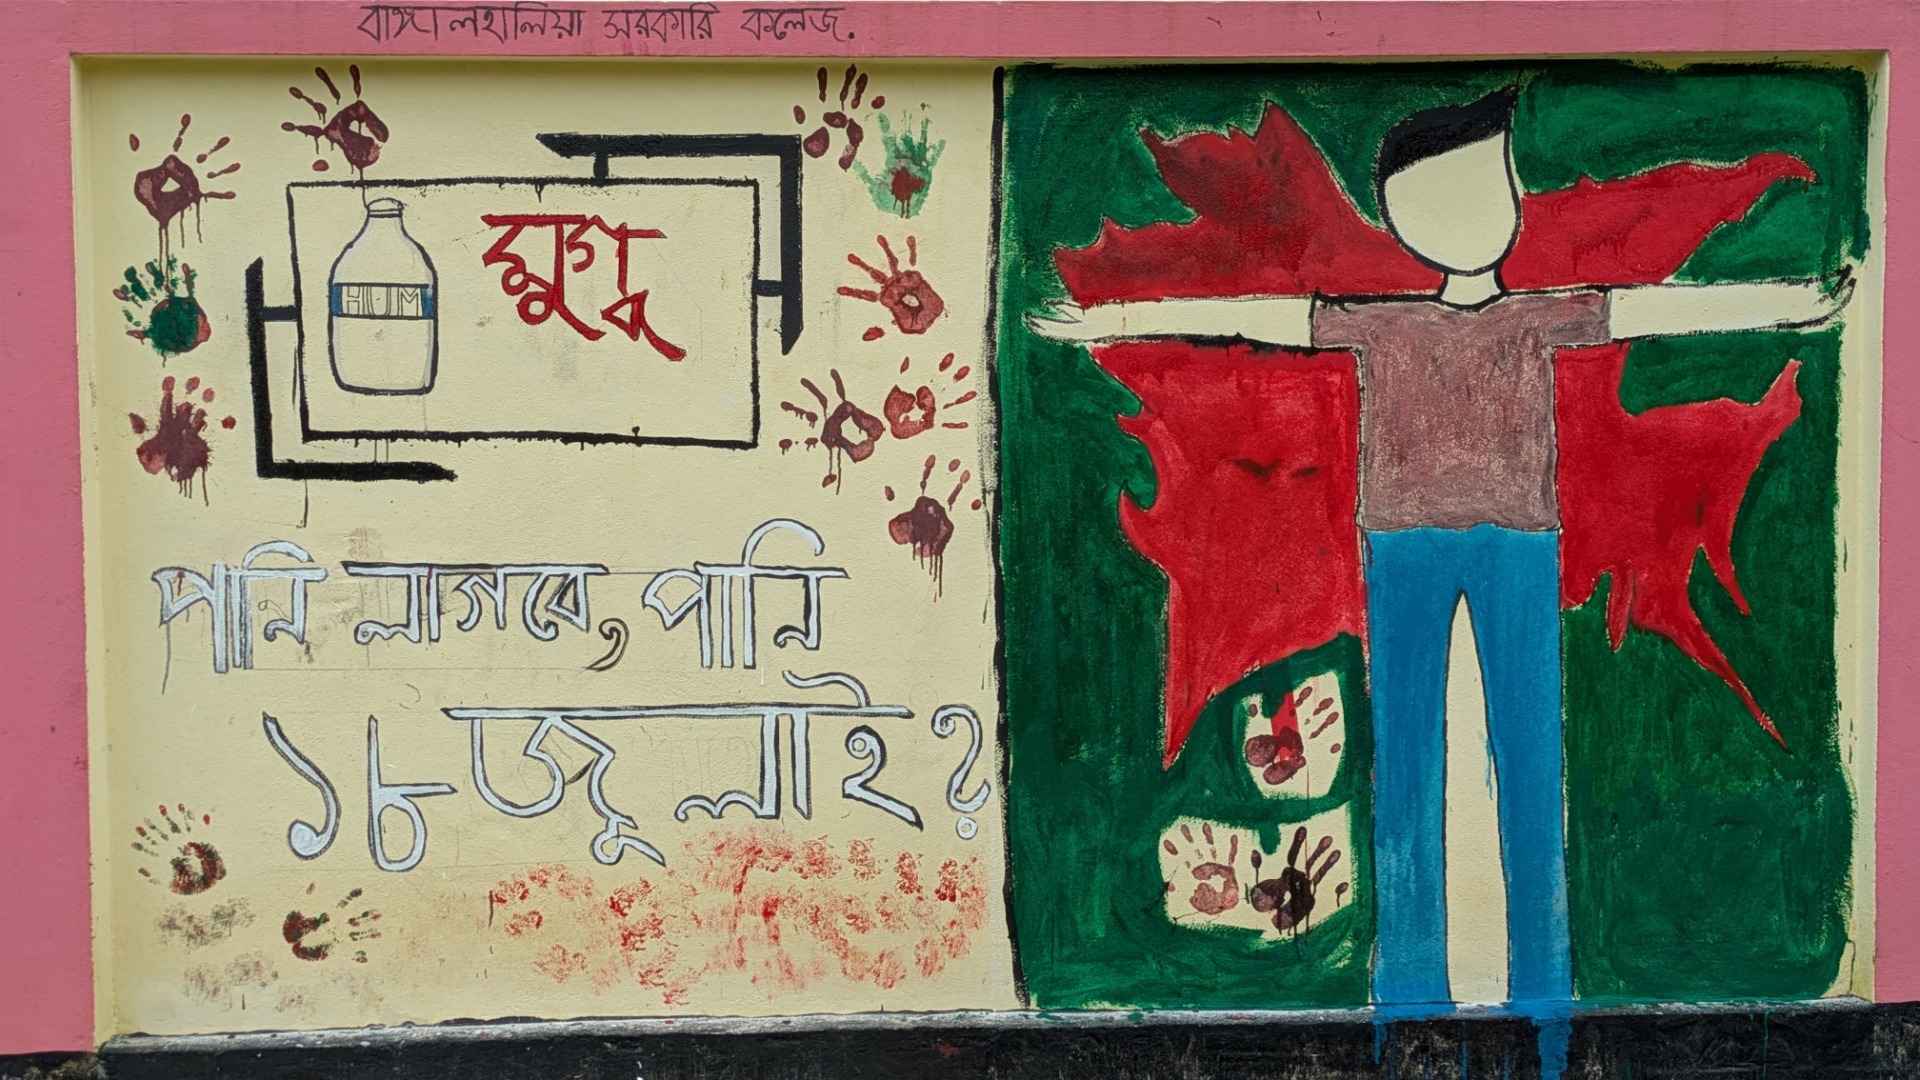 বাঙ্গালহালিয়া সরকারি কলেজ.
HUM
মুগ্ধ
পানি লাগবে, পানি
১৮ জুলাই ?